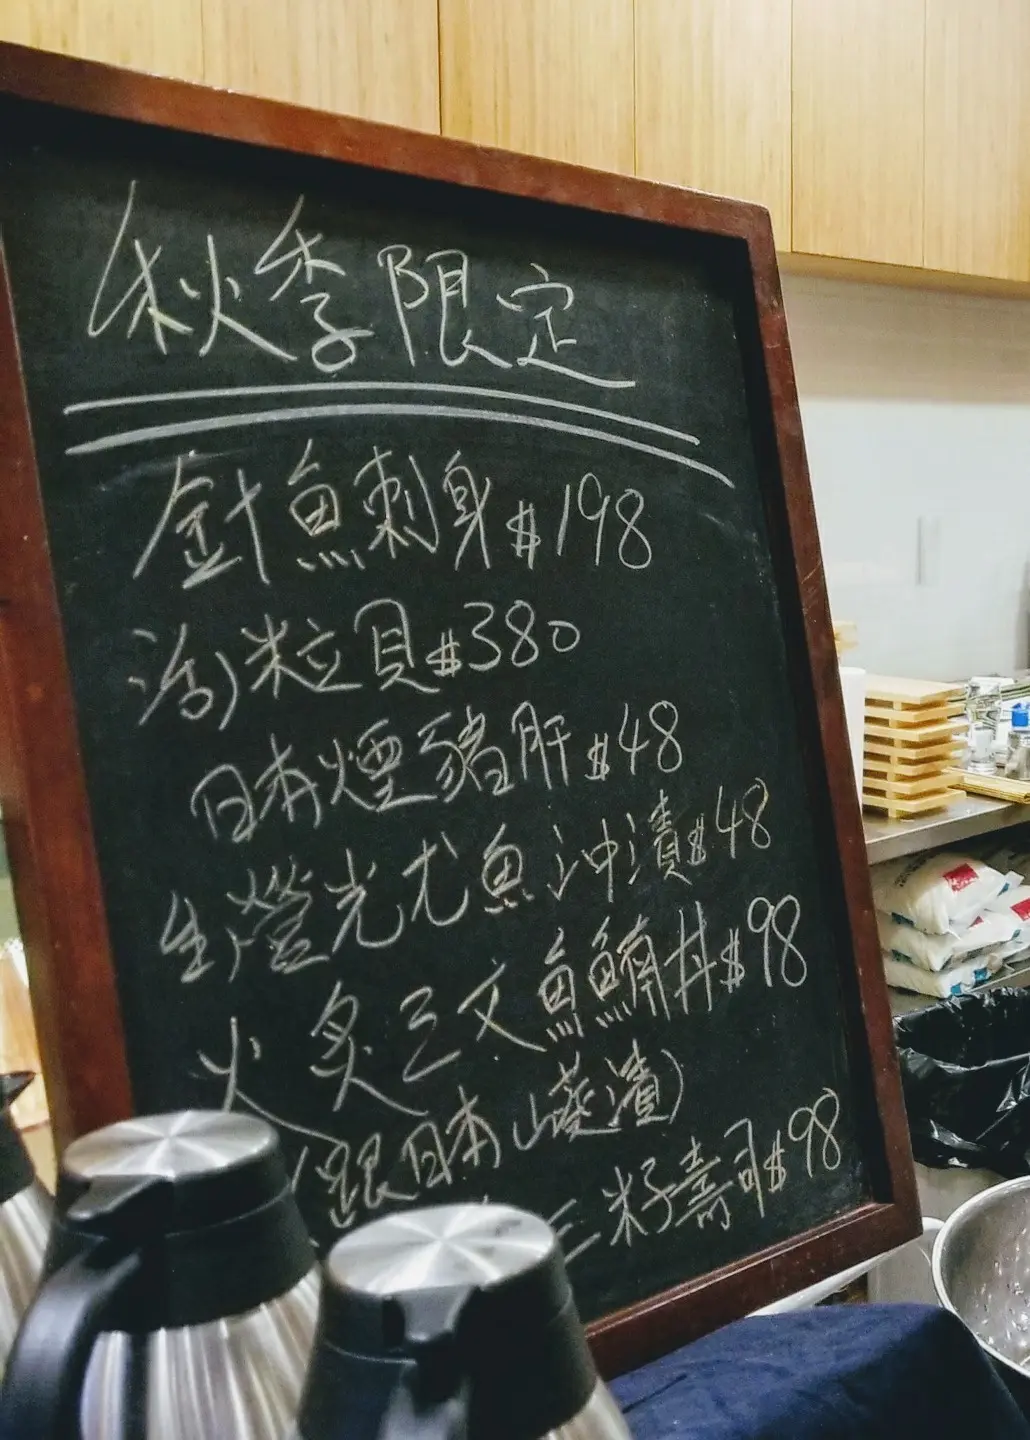 秋季限定
針魚刺身$198
活粒貝$380
日本煙豬肝$48
生螢光尤魚沖漬$48
火炙三文魚鰇丼$98
(跟日本山葵漬)
三籽壽司$98